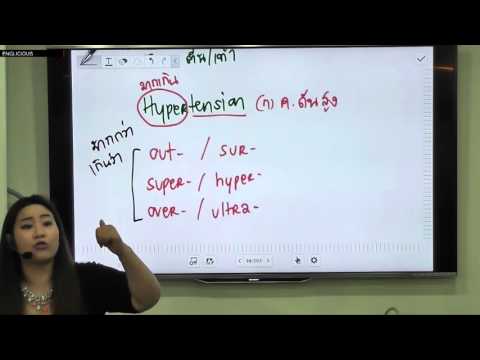 ENGLICIOUS
ตีน/เท้า
มากเกิน
Hypertension (n) ค.ดันสูง
มากกว่า
เกินว่า
out- / sur-
super- / hyper-
over- / ultra-